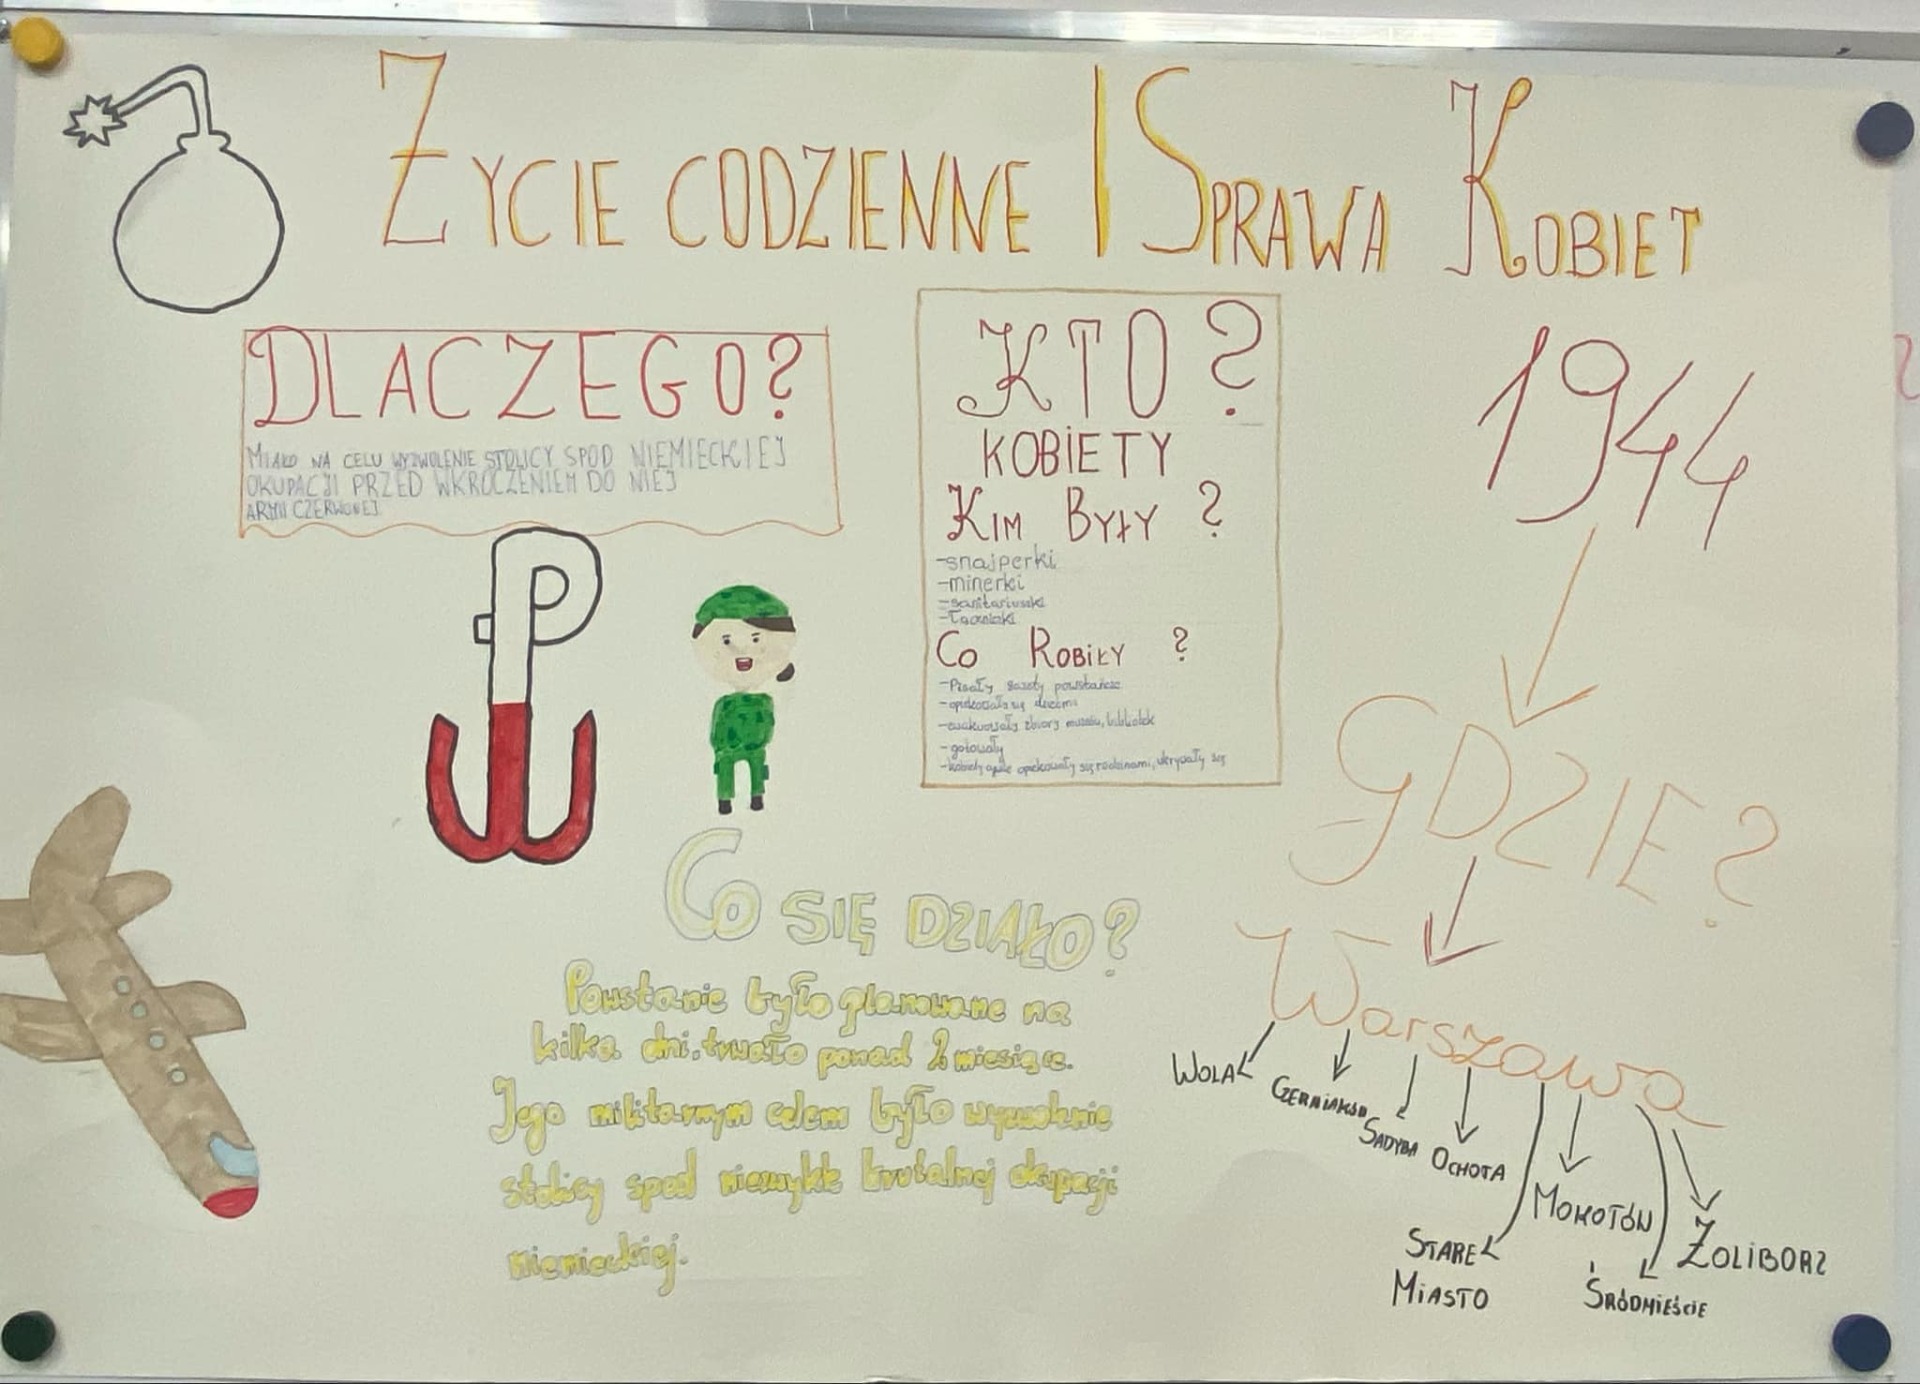 Życie codzienne I Sprawa Kobiet
DLACZEGO?
Miało na celu wyzwolenie stolicy spod niemieckiej
okupacji przed wkroczeniem do niej
Armii Czerwonej
KTO?
KOBIETY
Kim Były?
-snajperki
-minerki
-sanitariuszki
-Łączniczki
Co Robiły?
-Pisały gazety powstańcze
-opiekowały się dziećmi
-ewakuowały zbiory muzeów, bibliotek
-gotowały
opiekowały się rodzinami, ukrywały się
1944
GDZIE?
Warszawa
Wola
Czerniaków
Sadyba
Ochota
Stare
Miasto
Mokotów
Śródmieście
Żoliborz
Co się działo?
Powstanie było planowane na
kilka dni, trwało ponad 2 miesiące.
Jego militarnym celem było wyzwolenie
stolicy spod niezwykle brutalnej okupacji
niemieckiej.